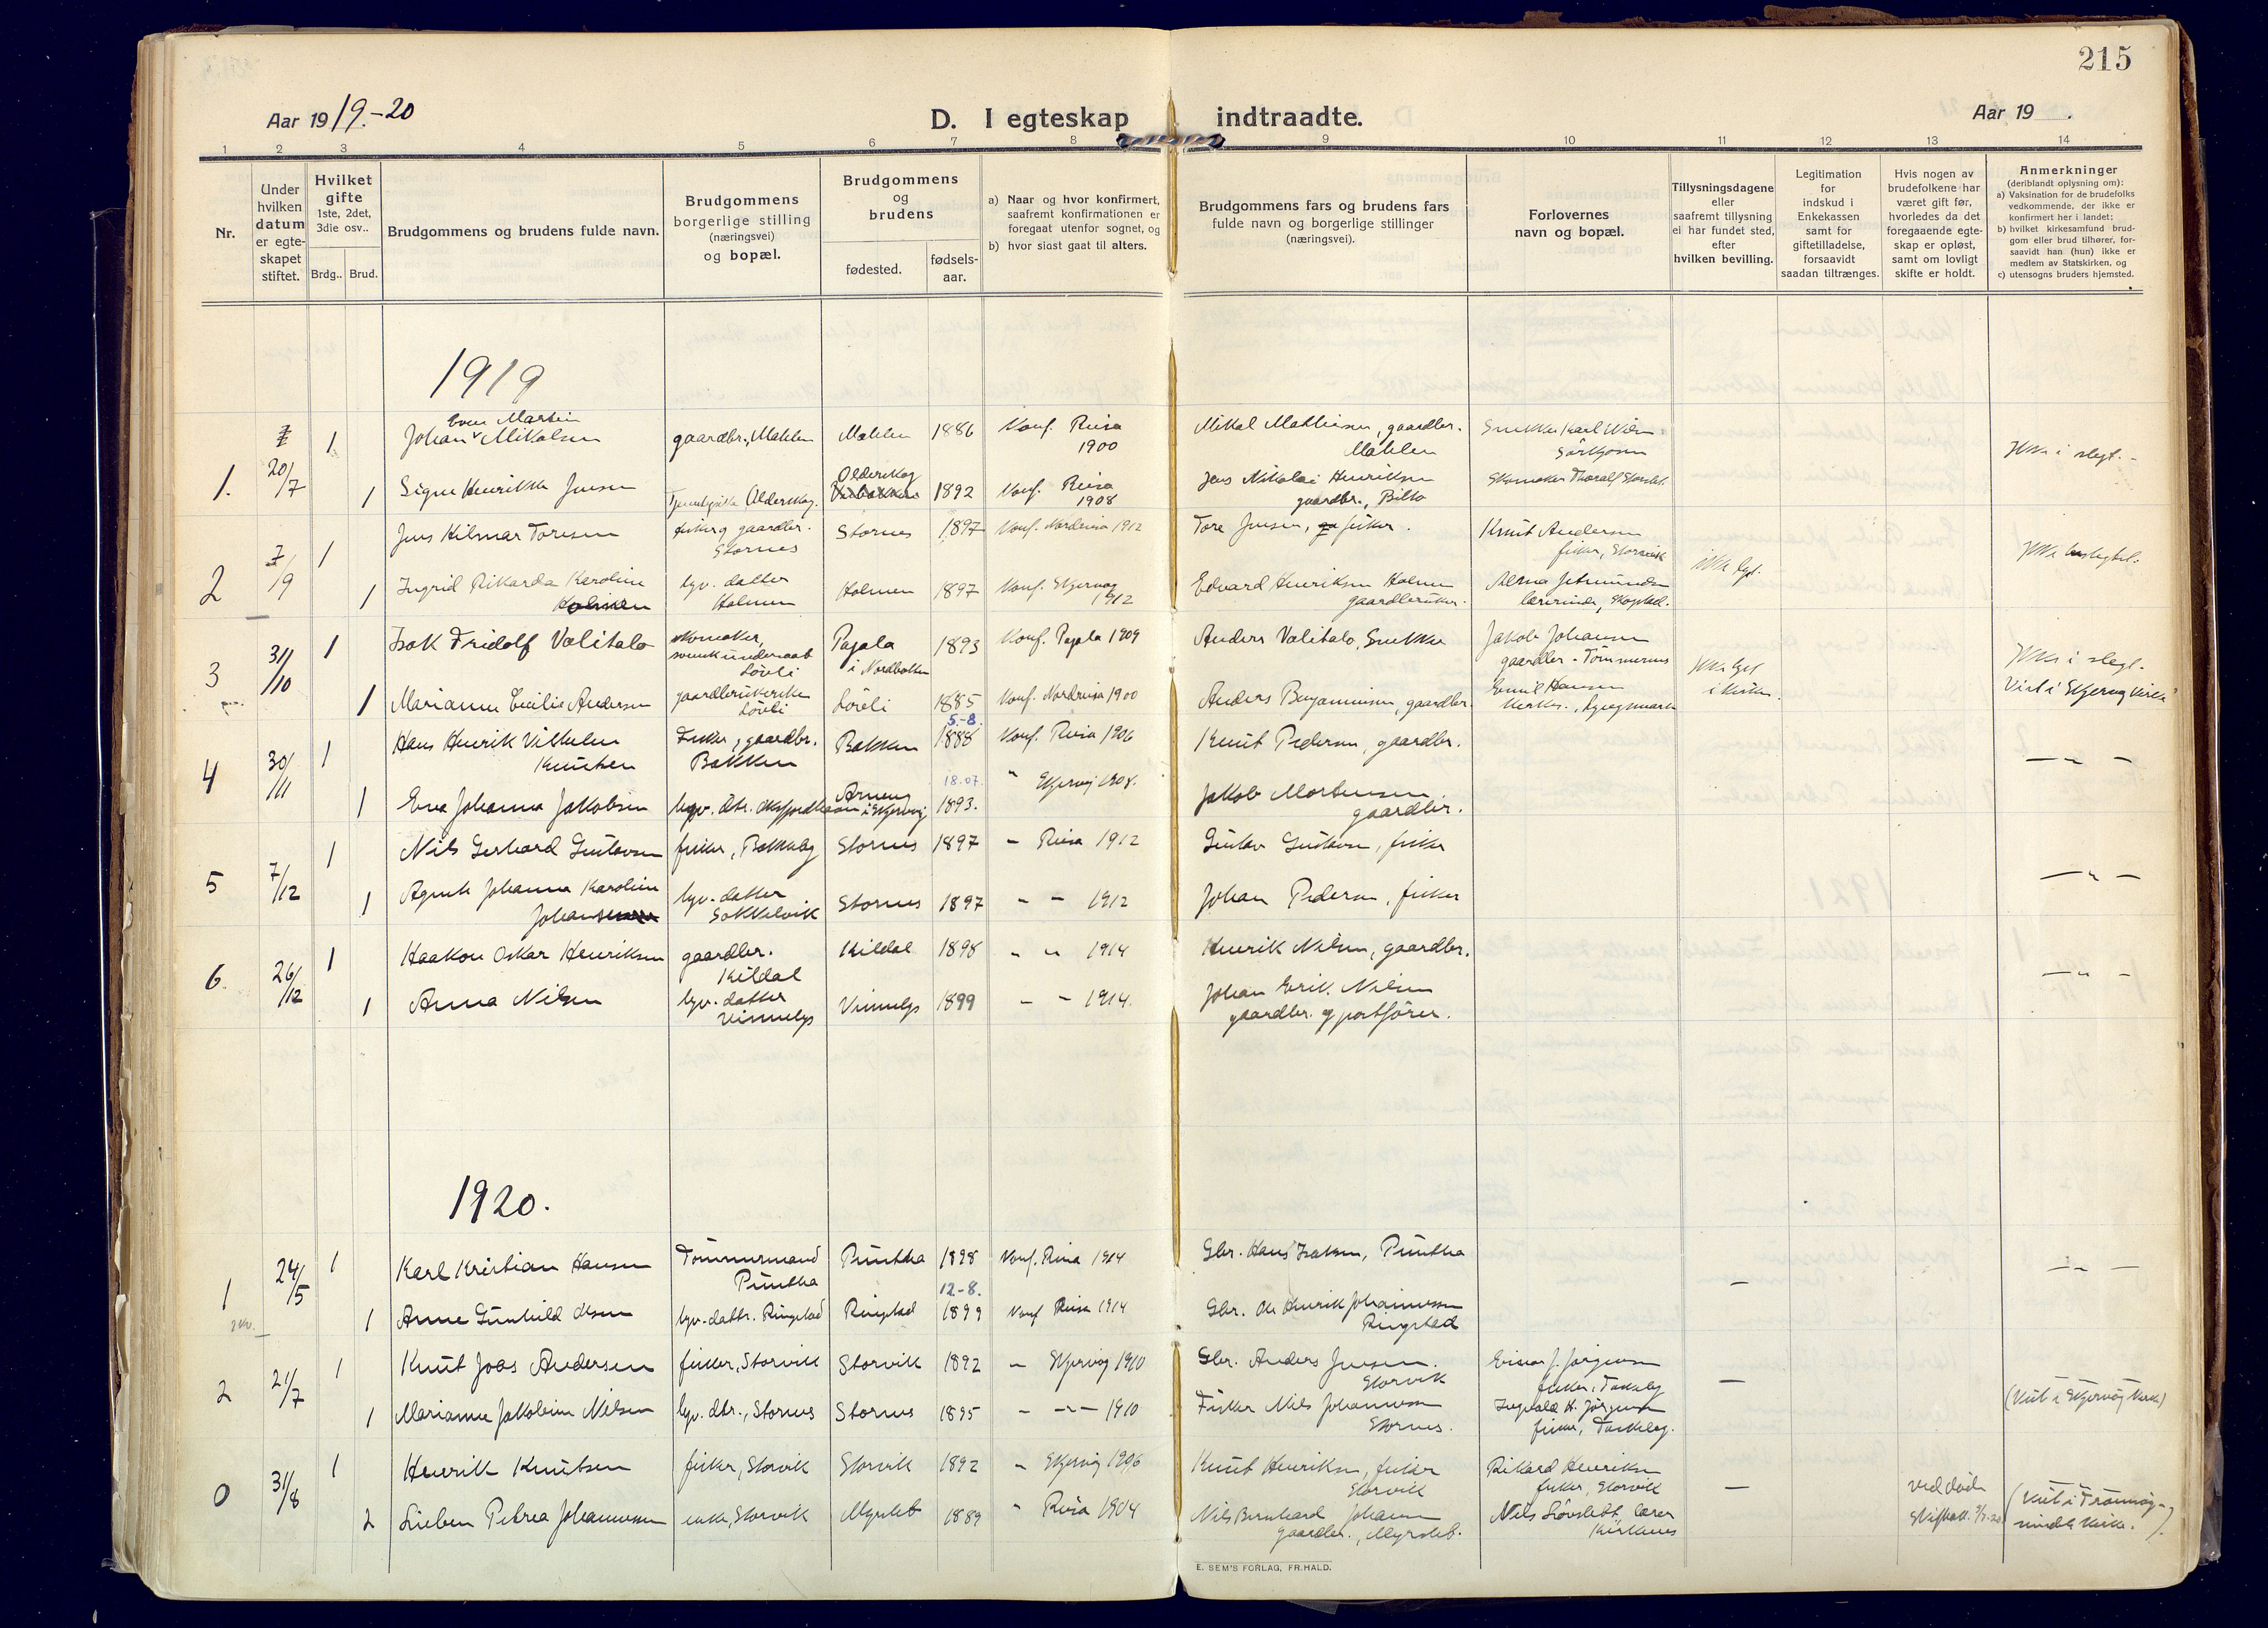 215
Aar 1919.-20
D. I egteskap indtraadte.
Aar 19 .
1 2 3 4 5 6 7 8 9 10 11 12 13 14
Nr.
Under hvilken datum er egte-skapet stiftet.
Hvilket gifte 1ste, 2det, 3die osv..
Brdg.. Brud.
Brudgommens og brudens fulde navn.
Brudgommens borgerlige stilling (næringsvei) og bopæl.
Brudgommens og brudens
fødested.
fødsels-aar.
a) Naar og hvor konfirmert, saafremt konfirmationen er foregaat utenfor sognet, og
b) hvor sidst gaat til alters.
Brudgommens fars og brudens fars fulde navn og borgerlige stillinger (næringsvei).
Forlovernes navn og bopæl.
Tillysningsdagene eller saafremt tillysning ei har fundet sted, efter hvilken bevilling.
Legitimation for indskud i Enkekassen samt for giftetilladelse, forsaavidt saadan tiltrænges.
Hvis nogen av brudefolkene har været gift før, hvorledes da det foregaaende egte-skap er opløst, samt om lovligt skifte er holdt.
Anmerkninger (deriblandt oplysning om):
a) Vaksination for de brudefolks vedkommende, der ikke er konfirmert her i landet;
b) hvilket kirkesamfund brud-gom eller brud tilhører, for-saavidt han (hun) ikke er medlem av Statskirken, og
c) utensogns bruders hjemsted.
1919
1. 20/7
1 Johan Even Martin Mikalsen gaardbr., Malilen Malilen 1886 Konf. Reisa 1900 Mikal Mathisen, gaardbr. Malilen Snekker Karl Nilsen Sörkjosen
Ikke i slegt.-
1 Signe Henrikke Jensen Olderskog 1892 Konf. Reisa 1908 Jens Nikolai Henriksen gaardbr., Bilto Skomaker Thoralf Storslet.
2 7/9
1 Jens Hilmar Toresen fisker og gaardbr. Stornes Stornes 1897 Konf. Nordreisa 1912 Tore Jensen, fisker. Knut Andersen fisker, Storvik
ikke lyst. Ikke beslegtet.
1 Ingrid Rikarda Karoline Holmen hjv. datter Holmen Holmen 1897 Konf. Skjervøg 1912 Edvard Henriksen Holmen gaardbruker. lærerinde,
3 31/10
1 Isak Fridolf Valitalo skomaker, svensk undersaat Lövli Pajala i Nordbotten 1893 Konf. Pajala 1909 Anders Valitalo, Snekker Jakob Johansen gaardbr - Tömmernes
Ikke lyst i kirken. Ikke i slegt. Viet i Skjervøg kirke
1 Marianne Cecilie Andersen gaardbrukerske Lövli Lövli 1885 Konf. Nordreisa 1900 Anders Benjaminsen, gaardbr. Emil Hansen
4 30/11
1 Hans Henrik Vilhelm Knutsen Fisker, gaardbr. Bakken Bakken 5.-8. 1888 Konf. Reisa 1906 Knut Pedersen, gaardbr.
— „ —
1 Eva Johanna Jakobsen hjv. dtr. Oksfjordhavn Arnøy i Skjervøy 18.07. 1893. " Skjervøy 1908. Jakob Mortensen. gaardbr.
5 7/12
1 Nils Gerhard Gustavsen fisker, Bakkeby Stornes 1897 - Reisa 1912 Gustav Gustavsen, fisker
— „ —
1 Agnete Johanna Karoline Johansen hjv. datter Sokkelvik Stornes 1897 - - 1912 Johan Pedersen, fisker
6. 26/12
1 Haakon Oskar Henriksen gaardbr. Kildal Kildal 1898 " " 1914 Henrik Nilsen, gaardbr.
— „ —
1 Anna Nilsen hjv. datter Vinnelys Vinnelys 1899 - - 1914. Johan Erik Nilsen gaardbr. og postförer.
1920.
1 24/5
1 Karl Kristian Hansen Tömmermand Puntta Puntta 1898 Konf. Reisa 1914 Gbr. Hans Isaksen, Puntta
— — „ —
1 Anne Gunhild Olsen hjv-dattr. Ringstad Ringstad 12-8. 1899 Konf Reisa 1914 Gbr. Ole Henrik Johannessen Ringstad
2 21/7
1 Knut Joas Andersen fisker, Storvik Storvik 1892 - Skjervøg 1910 Gbr. Anders Jensen. Storvik Einar J. Jörgensen fisker,
— (Viet i Skjervøg Kirke)
1 Marianne Jakobine Nilsen hjv. dtr., Stornes Stornes 1895 - -„- 1910 Fisker Nils Johannesen Stornes. Ingvald H. Jörgensen fisker,
0 31/8
1 Henrik Knutsen fisker, Storvik Storvik 1892 - Skjervøy 1906 Knut Henriksen, fisker Storvik Rikard Henriksen fisker, Storvik
— ved död
2 Petrea Johannessen enke, Storvik Myrslet 1889 " Reisa 1904 Nils Bernhard Johansen gaardbr., Myrslet. Nils Lövslett, lærer Kirkenes
E. SEM'S FORLAG, FR.HALD.